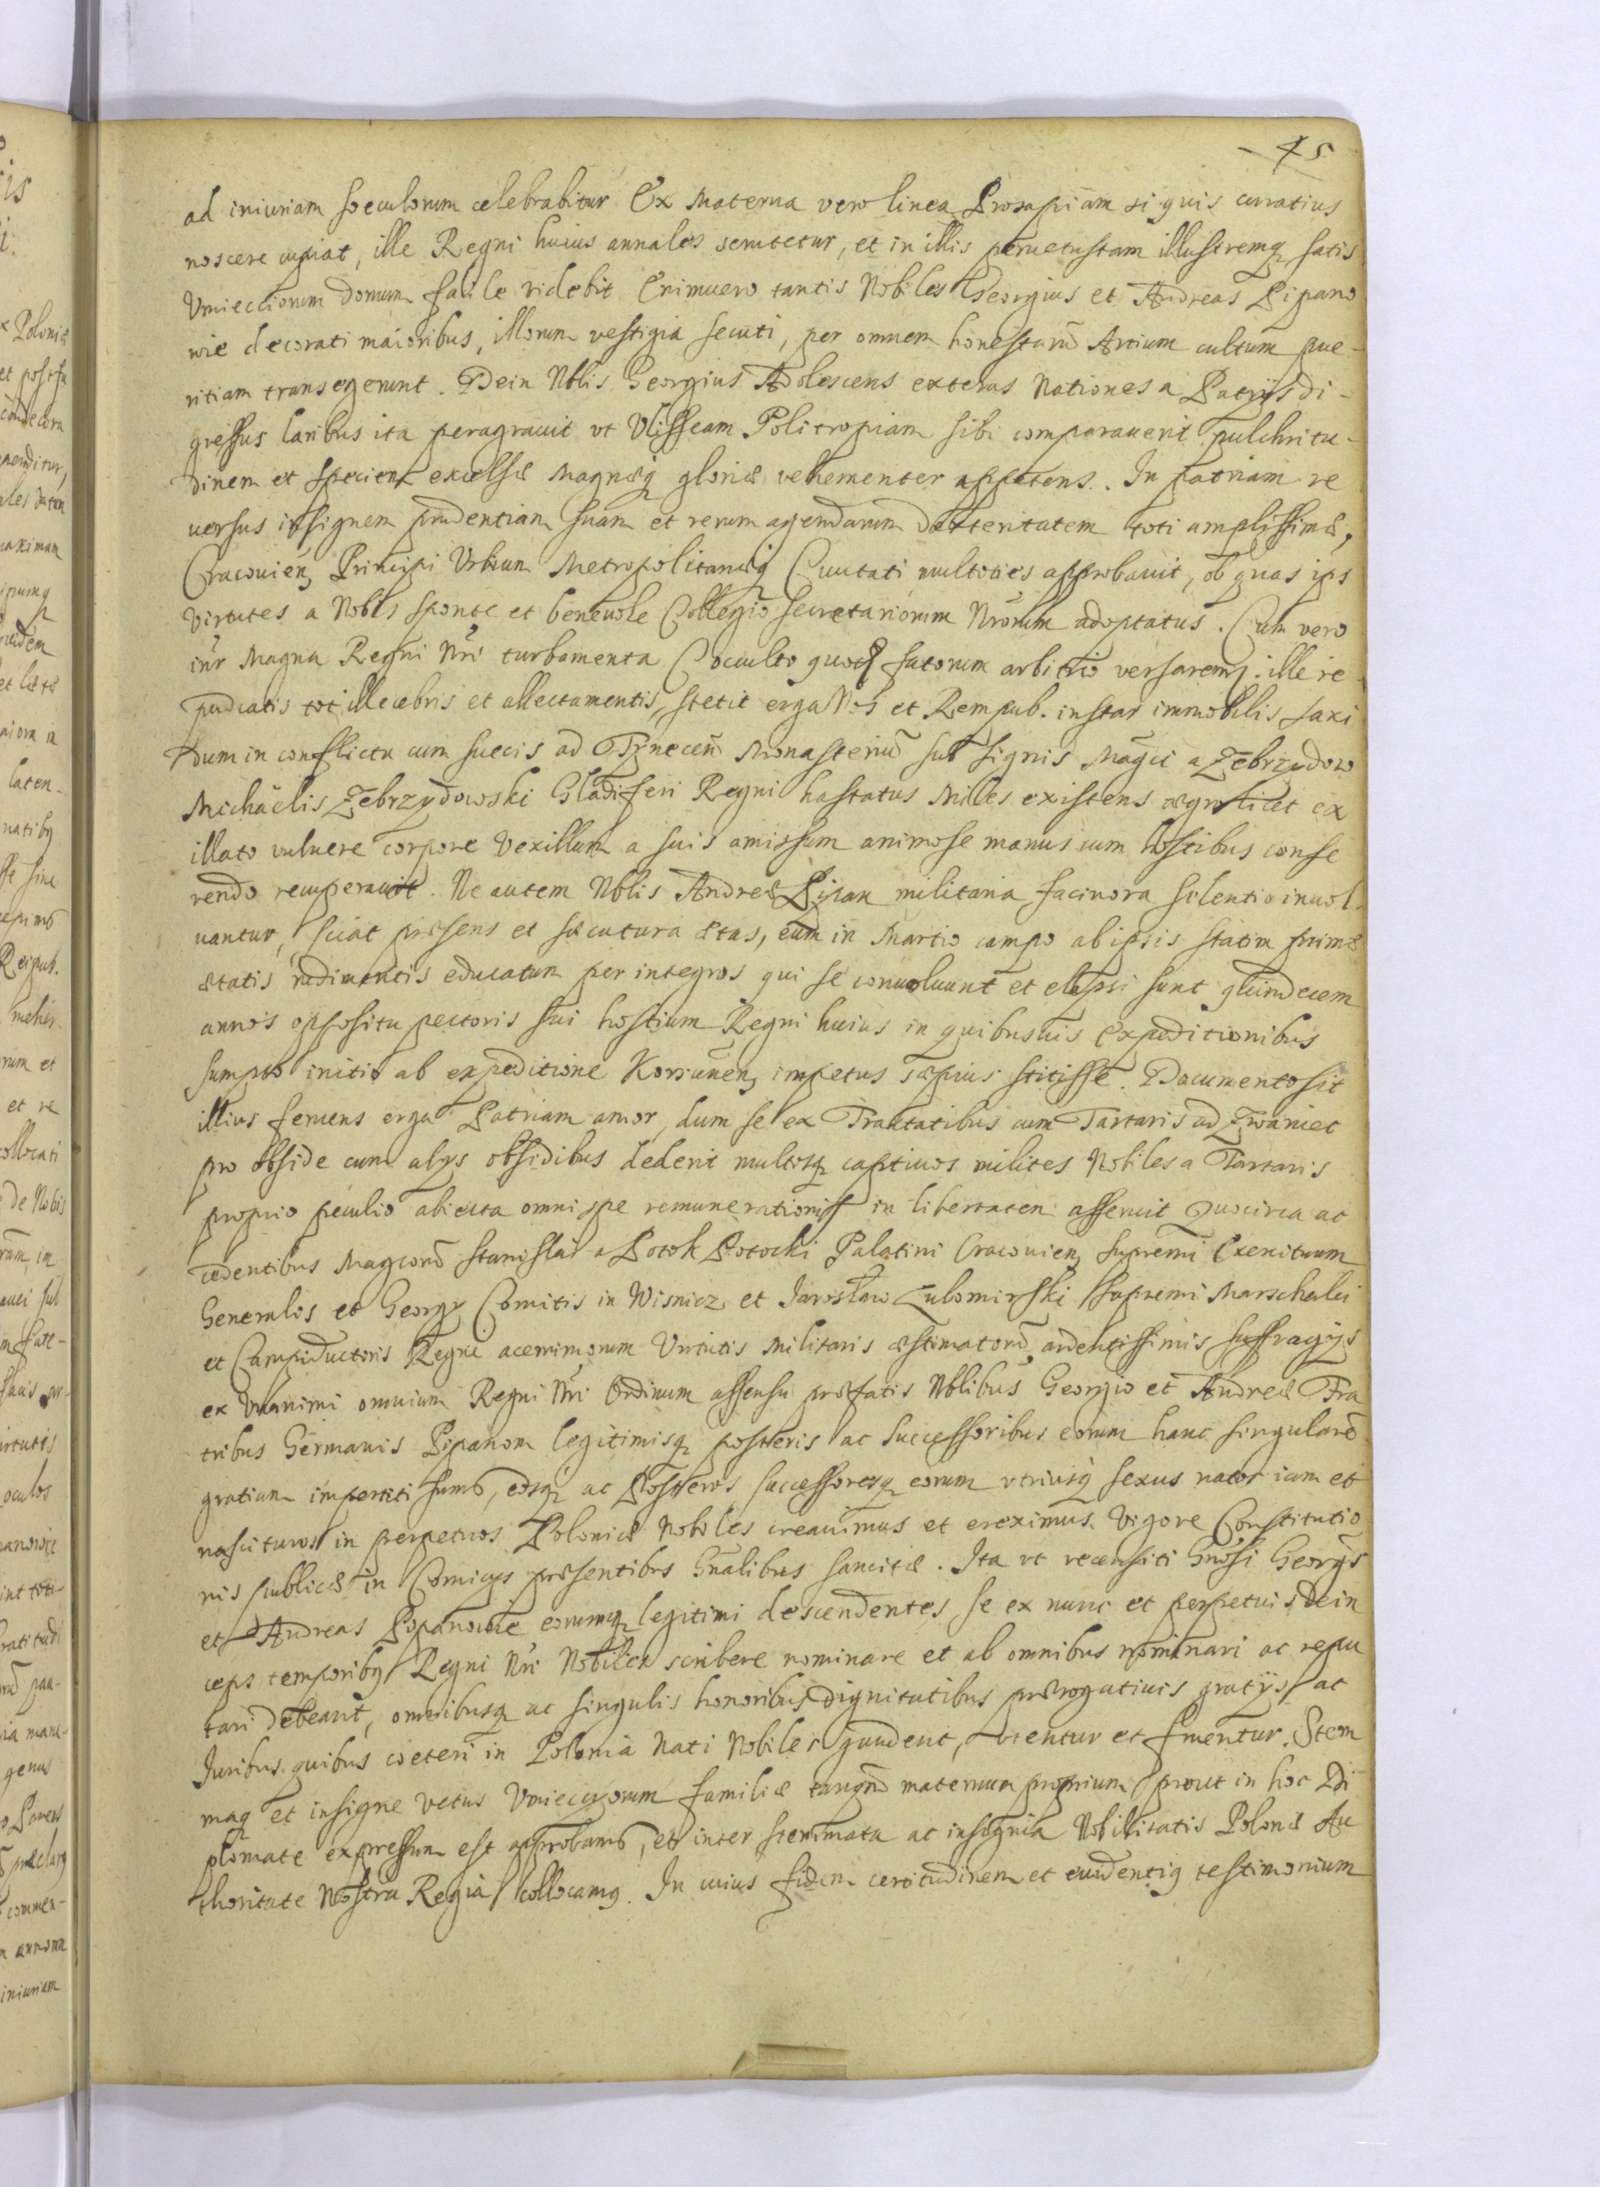 45
ad iniuriam soeculorum celebrabitur Ex Materna vero linea Prosapiam si quis curatius
noscere cupiat, ille Regni huius annales scrutetur, et in illis peruetustam illustremq satis
Vmiecciorum domum facile videbit Enimuero tantis Nobiles Georgius et Andreas Pipano
wie decorati maioribus, illorum vestigia secuti, per omnem honestarū Artium cultum pue-
ritiam transegerunt. Dein Nblis Georgius Adolescens exteras Nationes a Patrys di-
gressus laribus ita peragrauit vt Vlisseam Politropiam sibi comparauerit pulchritu-
dinem et speciem excelsæ Magnæq gloriæ vehementer appetens. In patriam re
uersus insignem prudentiam suam et rerum agendarum dexteritatem toti amplissimæ,
Cracouien, Principi Vrbium Metropolitanæq Ciuitati multoties approbauit, ob quas ips
Virtutes a Nobis sponte et beneuole Collegio Secretariorum Nrorum adoptatus. Cum vero
inr Magna Regni Nri turbamenta Occulto quodā fatorum arbitrio versaremq. ille re
pudiatis tot illecebris et allectamentis, stetit erga Nos et Rempub. instar immobilis saxi
Dum in conflictu cum suecis ad Tynecen Monasteriū sub signis Magci a Zebrzydow
Michaëlis Zebrzydowski Gladiferi Regni hastatus Miles existens ægro licet ex
illato vulnere corpore Vexillum a suis amissum animose manus cum hostibus conse
rendo recuperauit. Ne autem Nblis Andreæ Pipan militaria facinora silentio inuol-
uantur, sciat præsens et secutura ætas, eum in Martio campo ab ipsis statim primæ
ætatis rudimentis educatum per integros qui se conuoluunt et elapsi sunt quindecem
annos oppositu pectoris sui hostium Regni huius in quibusuis Expeditionibus
sumpto initio ab expeditione Korsunen, impetus sæpius stitisse. Documento sit
illius feruens erga Patriam amor, dum se ex Traktatibus cum Tartaris ad Zwaniec
pro obside cum alys obsidibus dederit multosq captiuos milites Nobiles a Tartaris
proprio peculio abiecta omni spe remunerationis in libertatem asseruit Quocirca ac
cedentibus Magcorū Stanislai a Potok Potocki Palatini Cracouien, Supremi Exercituum
Generalis et Georgy Comitis in Wisnicz et Jarosław Lubomirski Supremi Marschalci
et Campiductoris Regni acerrimorum Virtutis Militaris æstimatorū, ardentissimis suffragys
ex Vnanimi omnium Regni Nri Ordinum assensu præfatis Nblibus Georgio et Andreæ Fra
tribus Germanis Pipanom legitimisq posteris ac Successoribus eorum hanc singularē
gratiam impertiti sums, eosq ac Posteros successoresq eorum vtriusq sexus natos iam et
nascituros in perpetuos Poloniæ Nobiles creauimus et ereximus. Vigore Constitutio
nis publicæ in Comicys præsentibus Gnalibus sancitæ. Ita vt recensiti Gnosi Georgs
et Andreas Pipanowie eorumq legitimi descendentes se ex nunc et perpetuis Dein
ceps temporibq Regni Nri Nobiles scribere nominare et ab omnibus nominari ac repu
tari debeant, omnibusq ac singulis honoribus dignitatibus prærogatiuis gratys ac
Juribus quibus coeteri in Polonia Nati Nobiles gaudent, vtentur et fruentur. Stem
maq et insigne vetus Vmiecciorum familiæ tanqm maternum proprium prout in hoc Di
plomate expressum est approbams, et inter stemmata ac insignia Nobilitatis Polonæ Au
thoritate Nostra Regia collocamq. In cuius fidem certitudinem et euidentiq testimonium